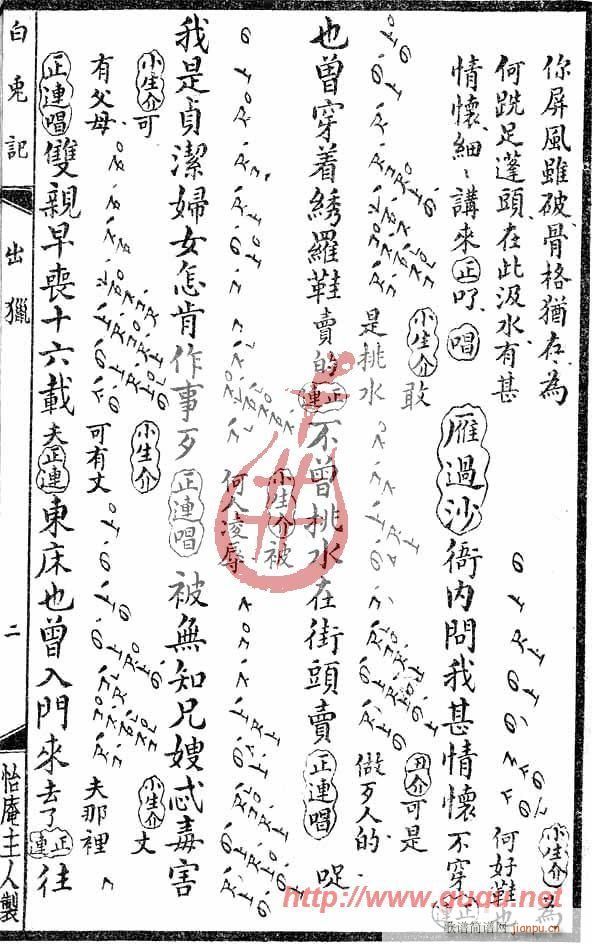 你屏風雖破骨格猶存為
何跣足蓬頭在此汲水有甚
情懷細、講來正吖唱
雁過沙衙内問我甚情懷
小生介為
何好鞋也
不穿
正連
也曾穿着綉羅鞋賣的正連不曾挑水在街頭賣正連唱哫
小生介敢
是挑水
丑介可是
做歹人的
我是貞潔婦女怎肯作事歹正連唱被無知兄嫂忒毒害
小生介被
何人凌辱
正連唱雙親早喪十六載正連東床也曾入門來去了正連往
小生介可
有父母
小生介
可有丈
夫
小生介丈
夫那裡
白兎記
出獵
二
怡庵主人製
http://www.guqu.net
jianpu.cn